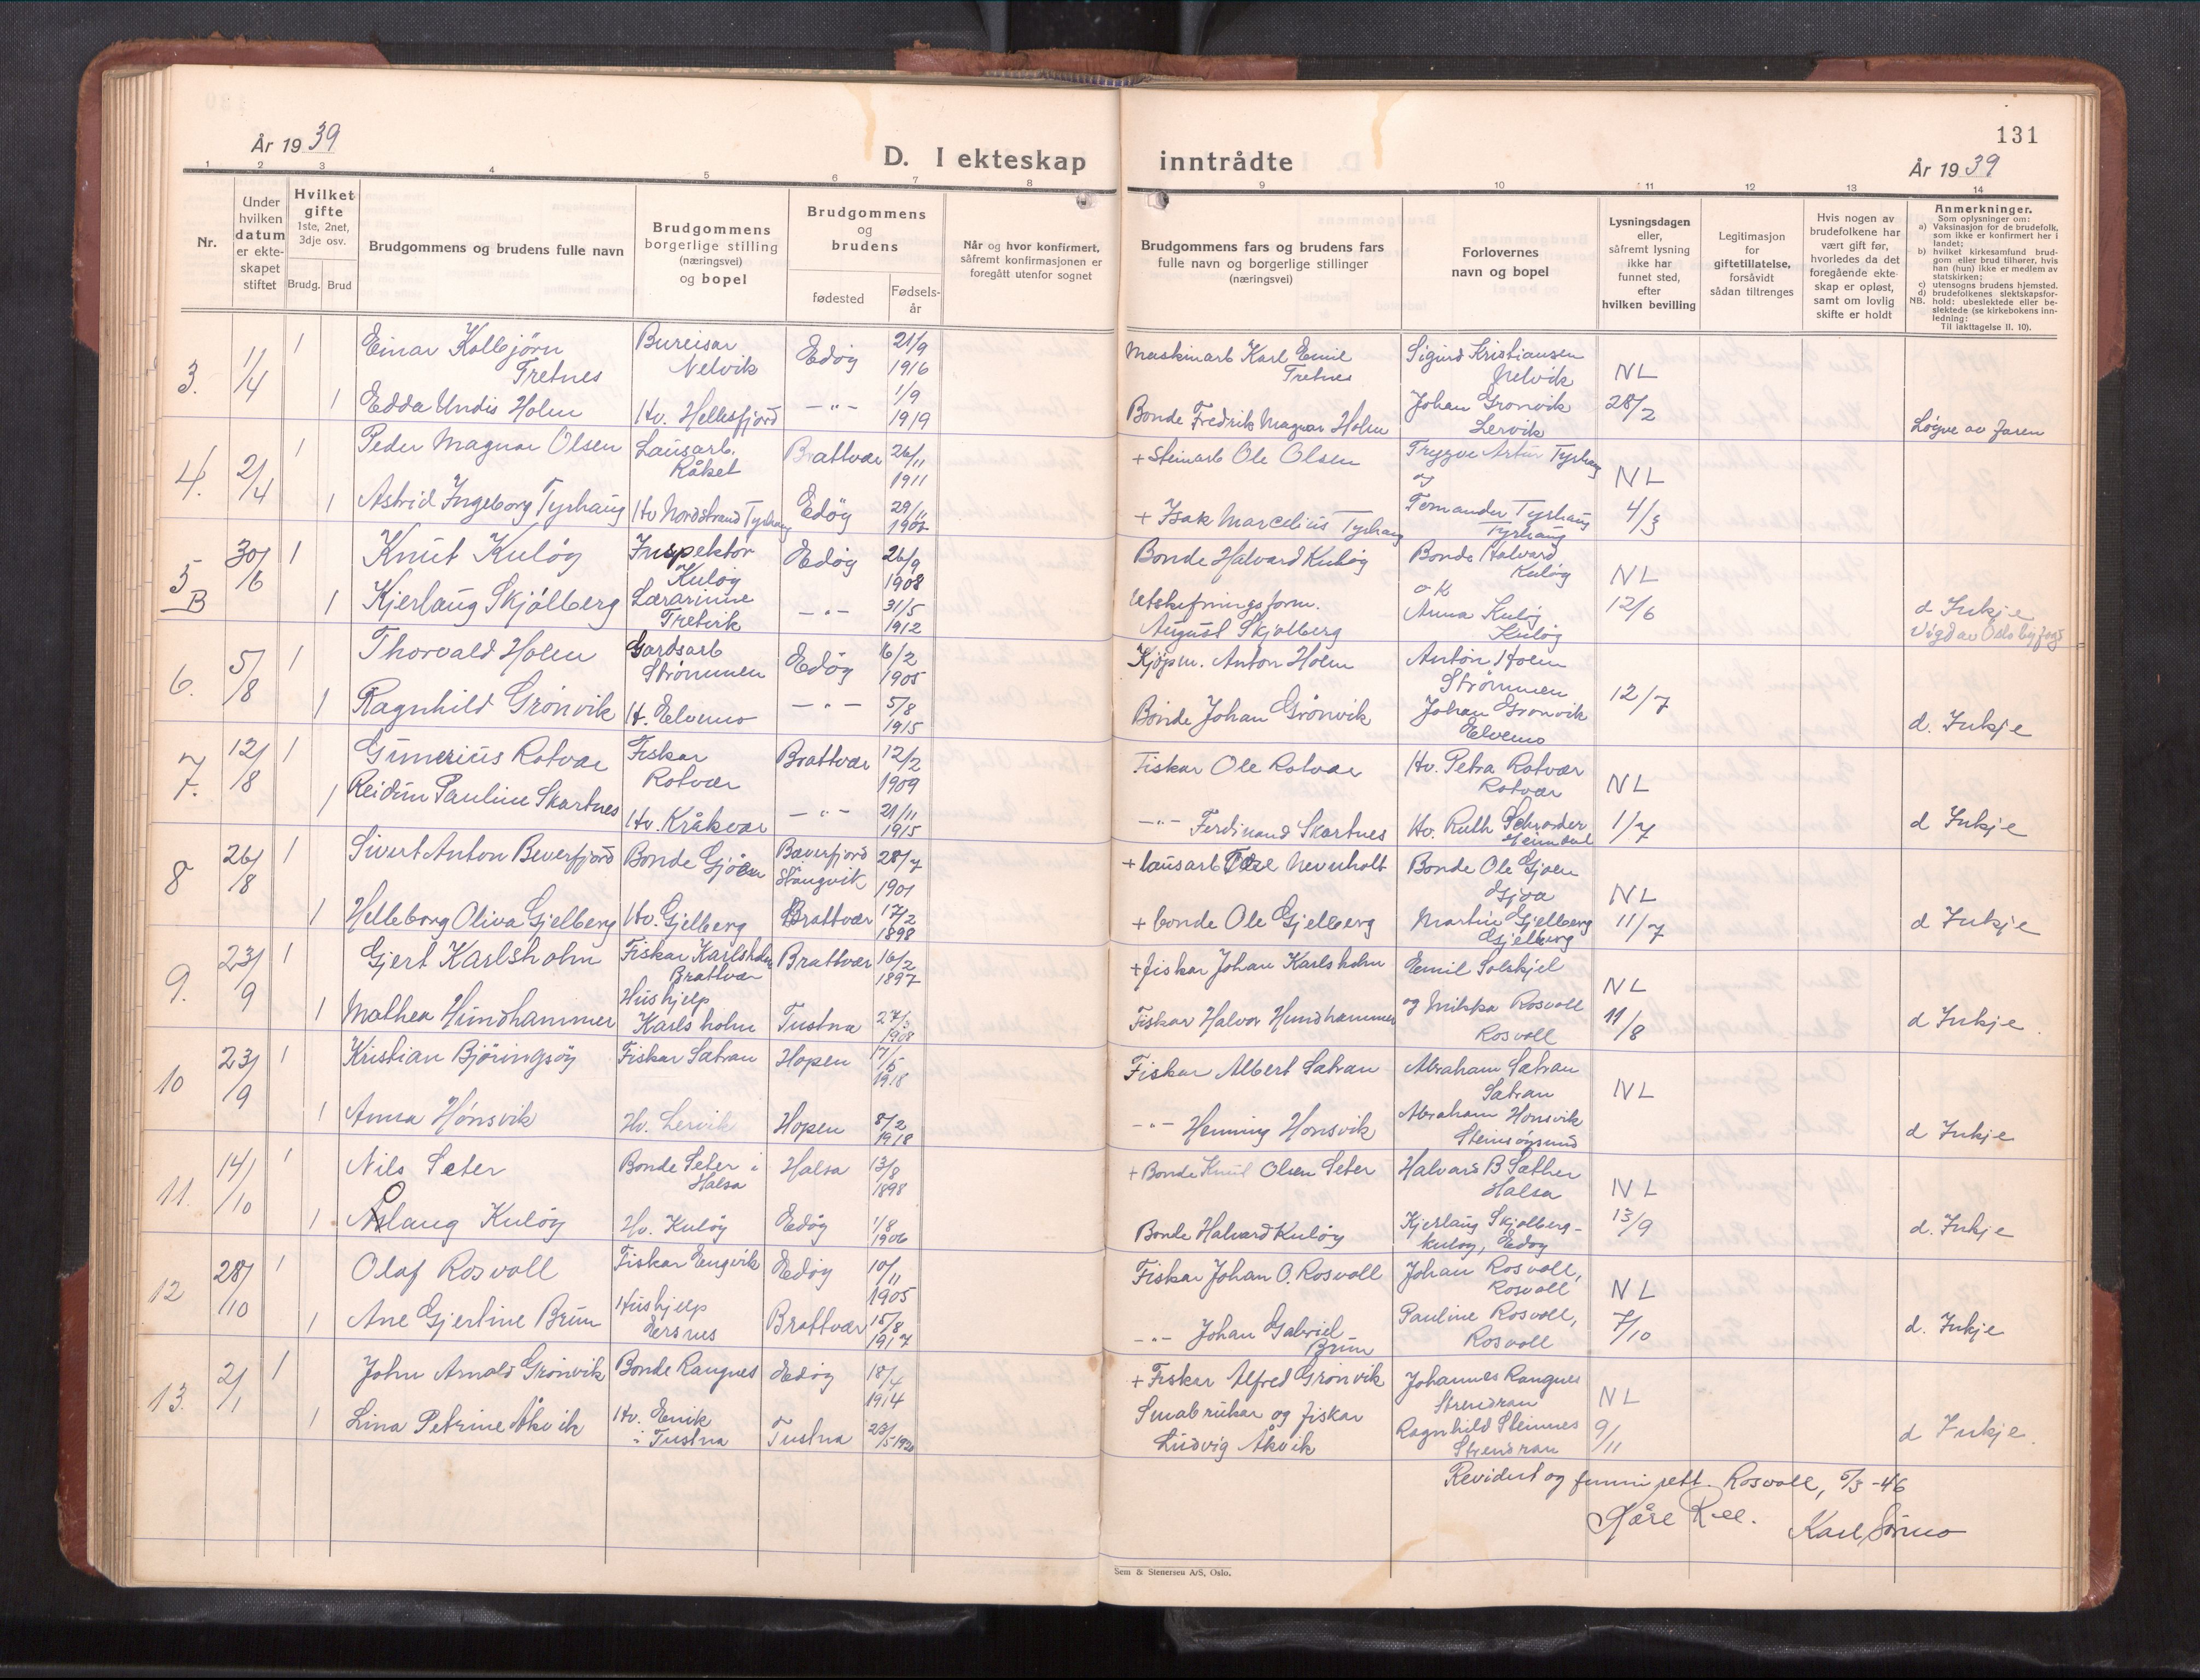 131
År 1939
D. I ekteskap inntrådte
År 1939
1 2 3 4 5 6 7 8 9 10 11 12 13 14
Nr.
Under hvilken datum er ekteskapet stiftet
Hvilket gifte 1ste, 2net, 3dje osv.
Brudg. Brud
Brudgommens og brudens fulle navn
Brudgommens borgerlige stilling (næringsvei) og bopel
Brudgommens og brudens
fødested
Fødselsår
Når og hvor konfirmert, såfremt konfirmasjonen er foregått utenfor sognet
Brudgommens fars og brudens fars fulle navn og borgerlige stillinger (næringsvei)
Forlovernes navn og bopel
Lysningsdagen eller, såfremt lysning ikke har funnet sted, efter hvilken bevilling
Legitimasjon for giftetillatelse, forsåvidt sådan tiltrenges
Hvis nogen av brudefolkene har vært gift før, hvorledes da det foregående ekteskap er opløst, samt om lovlig skifte er holdt
Anmerkninger.
Som oplysninger om:
a) Vaksinasjon for de brudefolk, som ikke er konfirmert her i landet;
b) hvilket kirkesamfund brudgom eller brud tilhører, hvis han (hun) ikke er medlem av statskirken;
c) utensogns brudens hjemsted.
d) brudefolkenes slektskapsforhold: ubeslektede eller beslektede (se kirkebokens innledning:
NB. Til iakttagelse II. 10).
3. 1/4 1 Einar Kolbjørn Tretnes Bureisar Nelvik Edøy 21/9 1916 Maskinarb Karl Emil Tretnes Sigurd Kristiansen Nelvik NL
1 Edda Undis Holm Hv. Hellesfjord -"- 1/9 1919 Bonde Fredrik Magnar Holm Johan Grønvik Lervik 28/2 Løyve av faren
4. 2/4 1 Peder Magnar Olsen Lausarb. Råket Brattvær 26/11 1911 + Steinarb Ole Olsen Trygve Artur Tyrhaug og NL
1 Astrid Ingeborg Tyrhaug Hv Nordstrand Tyrhaug Edøy 29/11 1907 + Isak Marcelius Tyrhaug Fernander Tyrhaug Tyrhaug 4/3
5 B 30/6 1 Knut Kuløy Inspektør Kuløy Edøy 26/9 1908 Bonde Halvard Kuløy Bonde Halvard Kuløy NL
1 Kjerlaug Skjølberg Lærarinne Tretvik -"- 31/5 1912 Utskiftningsform. August Skjølberg o K Anna Kuløy Kuløy 12/6 d Inkje
Vigd av Oslo byfogd
6. 5/8 1 Thorvald Holm Gardsarb Strømmen Edøy 16/2 1905 Kjøpm. Anton Holm Anton Holm Strømmen
1 Ragnhild Grønvik H. Elvemo -"- 5/8 1915 Bonde Johan Grønvik Johan Grønvik Elvemo 12/7 d. Inkje
7. 12/8 1 Gunerius Rotvær Fiskar Rotvær Brattvær 12/2 1909 Fiskar Ole Rotvær Hv. Petra Rotvær Rotvær NL
1 Reidun Pauline Skartnes Hv. Kråkvær -"- 21/11 1915 -"- Ferdinand Skartnes Hv. Ruth Schrøder 1/7 d Inkje
8 26/8 1 Sivert Anton Beverfjord Bonde Gjøen Bæverfjord Stangvik 28/7 1901 + lausarb Tore Neverholt Bonde Ole Gjøen Gjøa NL
1 Helleborg Oliva Gjelberg Hv. Gjelberg Brattvær 17/2 1898 + bonde Ole Gjelberg Martin Gjelberg Gjelberg 11/7 d Inkje
9. 23/9 1 Gjert Karlsholm Fiskar Karlsholm Brattvær Brattvær 16/2 1897 + fiskar Johan Karlsholm Emil Solskjel NL
1 Mathea Hundhammer Hushjelp Karlsholm Tustna 27/3 1908 Fiskar Halvor Hundhammer og Mikka Rosvoll Rosvoll 11/8 d Inkje.
10 23/9 1 Kristian Bjøringsøy Fiskar Sætran Hopen 17/5 1918 Fiskar Albert Sætran Abraham Sætran Sætran NL
1 Anna Hønsvik Hv. Lervik Hopen 8/2 1918 -"- Henning Hønsvik Abraham Hønsvik Steinsøysund d Inkje
11. 14/10 1 Nils Seter Bonde Seter i Halsa Halsa 13/8 1898 + Bonde Knut Olsen Seter Halvard B Sæther Halsa NL
1 Åslaug Kuløy Hv. Kuløy Edøy 1/8 1906 Bonde Halvard Kuløy Kjerlaug Skjølberg-Kuløy, Edøy 13/9 d. Inkje
12 28/10 1 Olaf Rosvoll Fiskar Engvik Edøy 10/11 1905 Fiskar Johan O. Rosvoll Johan Rosvoll, Rosvoll NL
1 Ane Gjertine Brun Hushjelp Ersnes Brattvær 15/8 1917 -"- Johan Gabriel Brun Pauline Rosvoll, Rosvoll 7/10 d. Inkje
13. 2/1 1 John Arnold Grønvik Bonde Rangnes Edøy 18/4 1914 + Fiskar Alfred Grønvik Johannes Rangnes NL
1 Lina Petrine Åkvik Hv. Envik i Tustna Tustna 23/5 1920 Småbrukar og fiskar Ludvig Åkvik Ragnhild Steinnes 9/11 d Inkje.
Revidert og funni rett. Rosvoll, 5/3 -46
Kåre R-ll. Karl Sørmo
Sem & Stenersen A/S, Oslo.